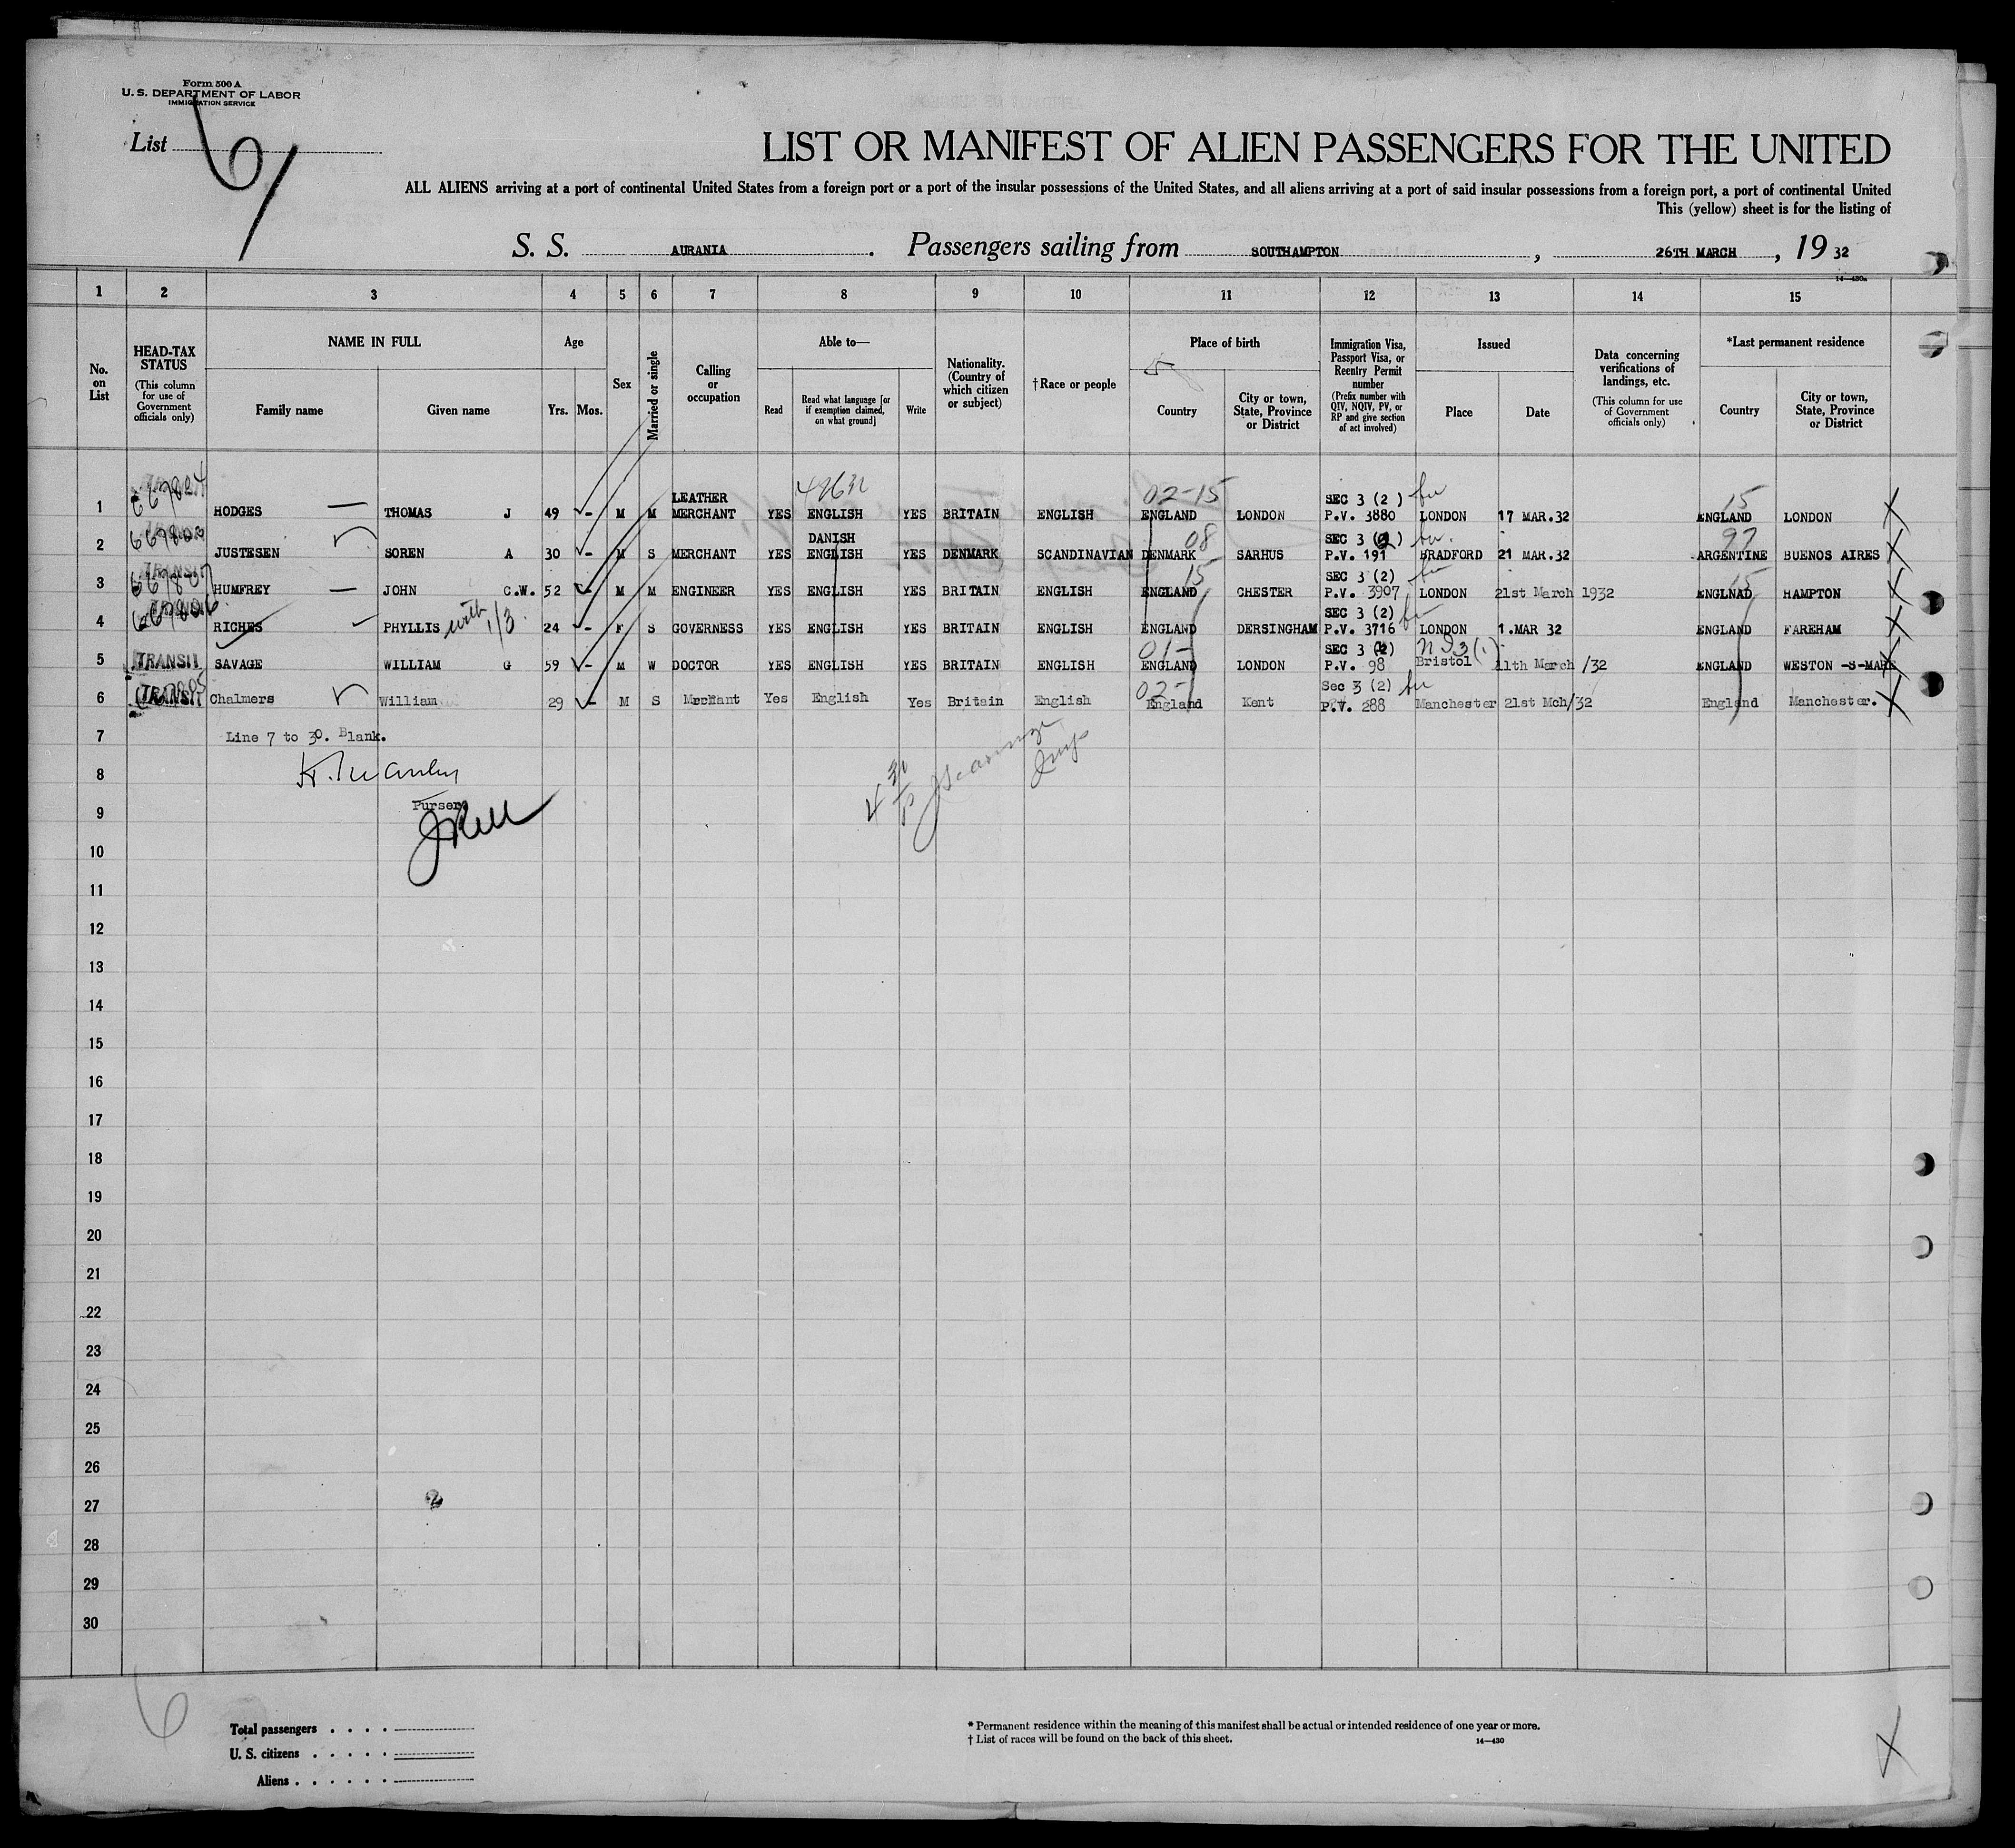 Form 500 A
U. S. DEPARTMENT OF LABOR
IMMIGRATION SERVICE
List 6/
LIST OR MANIFEST OF ALIEN PASSENGERS FOR THE UNITED
ALL ALIENS arriving at a port of continental United States from a foreign port or a port of the insular possessions of the United States, and all aliens arriving at a port of said insular possessions from a foreign port, a port of continental United
This (yellow) sheet is for the listing of
S. S. AURANIA. Passengers sailing from SOUTHAMPTON, 26TH MARCH, 19 32
14—430a
1 2 3 4 5 6 7 8 9 10 11 12 13 14 15
No. on List
HEAD-TAX STATUS
(This column for use of Government officials only)
NAME IN FULL
Family name
Given name
Age
Yrs. Mos.
Sex
Married or single
Calling or occupation
Able to—
Read
Read what language [or if exemption claimed, on what ground]
Write
Nationality. (Country of which citizen or subject)
†Race or people
Place of birth
Country
City or town, State, Province or District
Immigration Visa, Passport Visa, or Reentry Permit number
(Prefix number with QIV, NQIV, PV, or RP and give section of act involved)
Issued
Place
Date
Data concerning verifications of landings, etc.
(This column for use of Government officials only)
*Last permanent residence
Country
City or town, State, Province or District
LEATHER 02-15 SEC 3 (2) 15
1 HODGES — THOMAS J 49 - M M MERCHANT YES ENGLISH YES BRITAIN ENGLISH ENGLAND LONDON P.V. 3880 LONDON 17 MAR.32 ENGLAND LONDON
DANISH 08 SEC 3 (2) 97
2 JUSTESEN SOREN A 30 - M S MERCHANT YES ENGLISH YES DENMARK SCANDINAVIAN DENMARK SARHUS P.V. 191 BRADFORD 21 MAR.32 ARGENTINE BUENOS AIRES
TRANSIT 15 SEC 3 (2) 15
3 HUMFREY — JOHN C.W. 52 - M M ENGINEER YES ENGLISH YES BRITAIN ENGLISH ENGLAND CHESTER P.V. 3907 LONDON 21st March 1932 ENGLNAD HAMPTON
SEC 3 (2)
4 RICHES PHYLLIS with 1/3 24 - F S GOVERNESS YES ENGLISH YES BRITAIN ENGLISH ENGLAND DERSINGHAM P.V. 3716 LONDON 1.MAR 32 ENGLAND FAREHAM
01- SEC 3 (2)
5 TRANSIT SAVAGE WILLIAM G 59 - M W DOCTOR YES ENGLISH YES BRITAIN ENGLISH ENGLAND LONDON P.V. 98 Bristol 11th March /32 ENGLAND WESTON -S-MARE
02- Sec 3 (2)
6 TRANSIT Chalmers William 29 - M S Merchant Yes English Yes Britain English England Kent P.V. 288 Manchester 21st Mch/32 England Manchester.
7 Line 7 to 30. Blank.
8
Purser
9
10
11
12
13
14
15
16
17
18
19
20
21
22
23
24
25
26
27
28
29
30
6
Total passengers
U. S. citizens
Aliens
* Permanent residence within the meaning of this manifest shall be actual or intended residence of one year or more.
† List of races will be found on the back of this sheet.
14—430